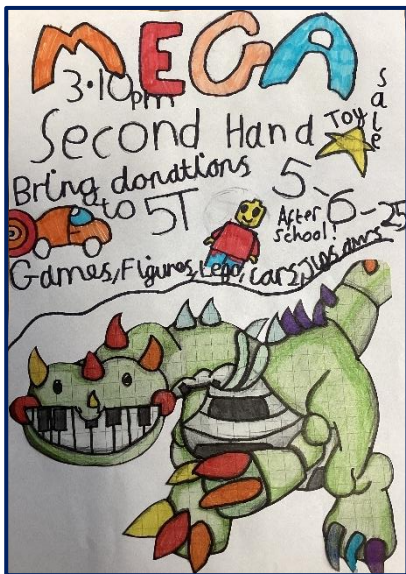 MEGA
3.10pm
Second Hand Toy Sale
Bring donations
to 5T
5-6-25
After
School!
Games, Figures, Lego, Cars, Jigsaws